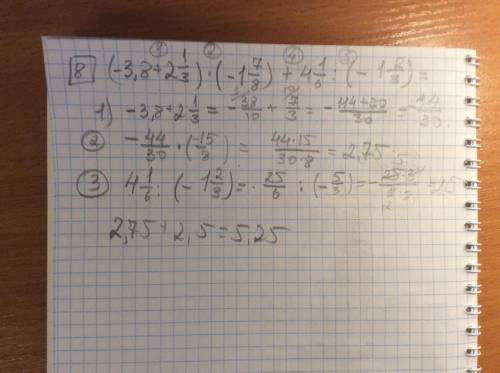 ① ② ④ ③
8 (-3,8+2 1/3) · (-1 7/8) + 4 1/6 : (-1 2/3) =
1) -3,8+2 1/3 = -38/10 + 7/3 = - /30 = -44/30
② -44/30 · (-15/8) = 44·15/30·8 = 2,75
③ 4 1/6 : (-1 2/3) = 25/6 : (-5/3) = -
2,75+2,5=5,25